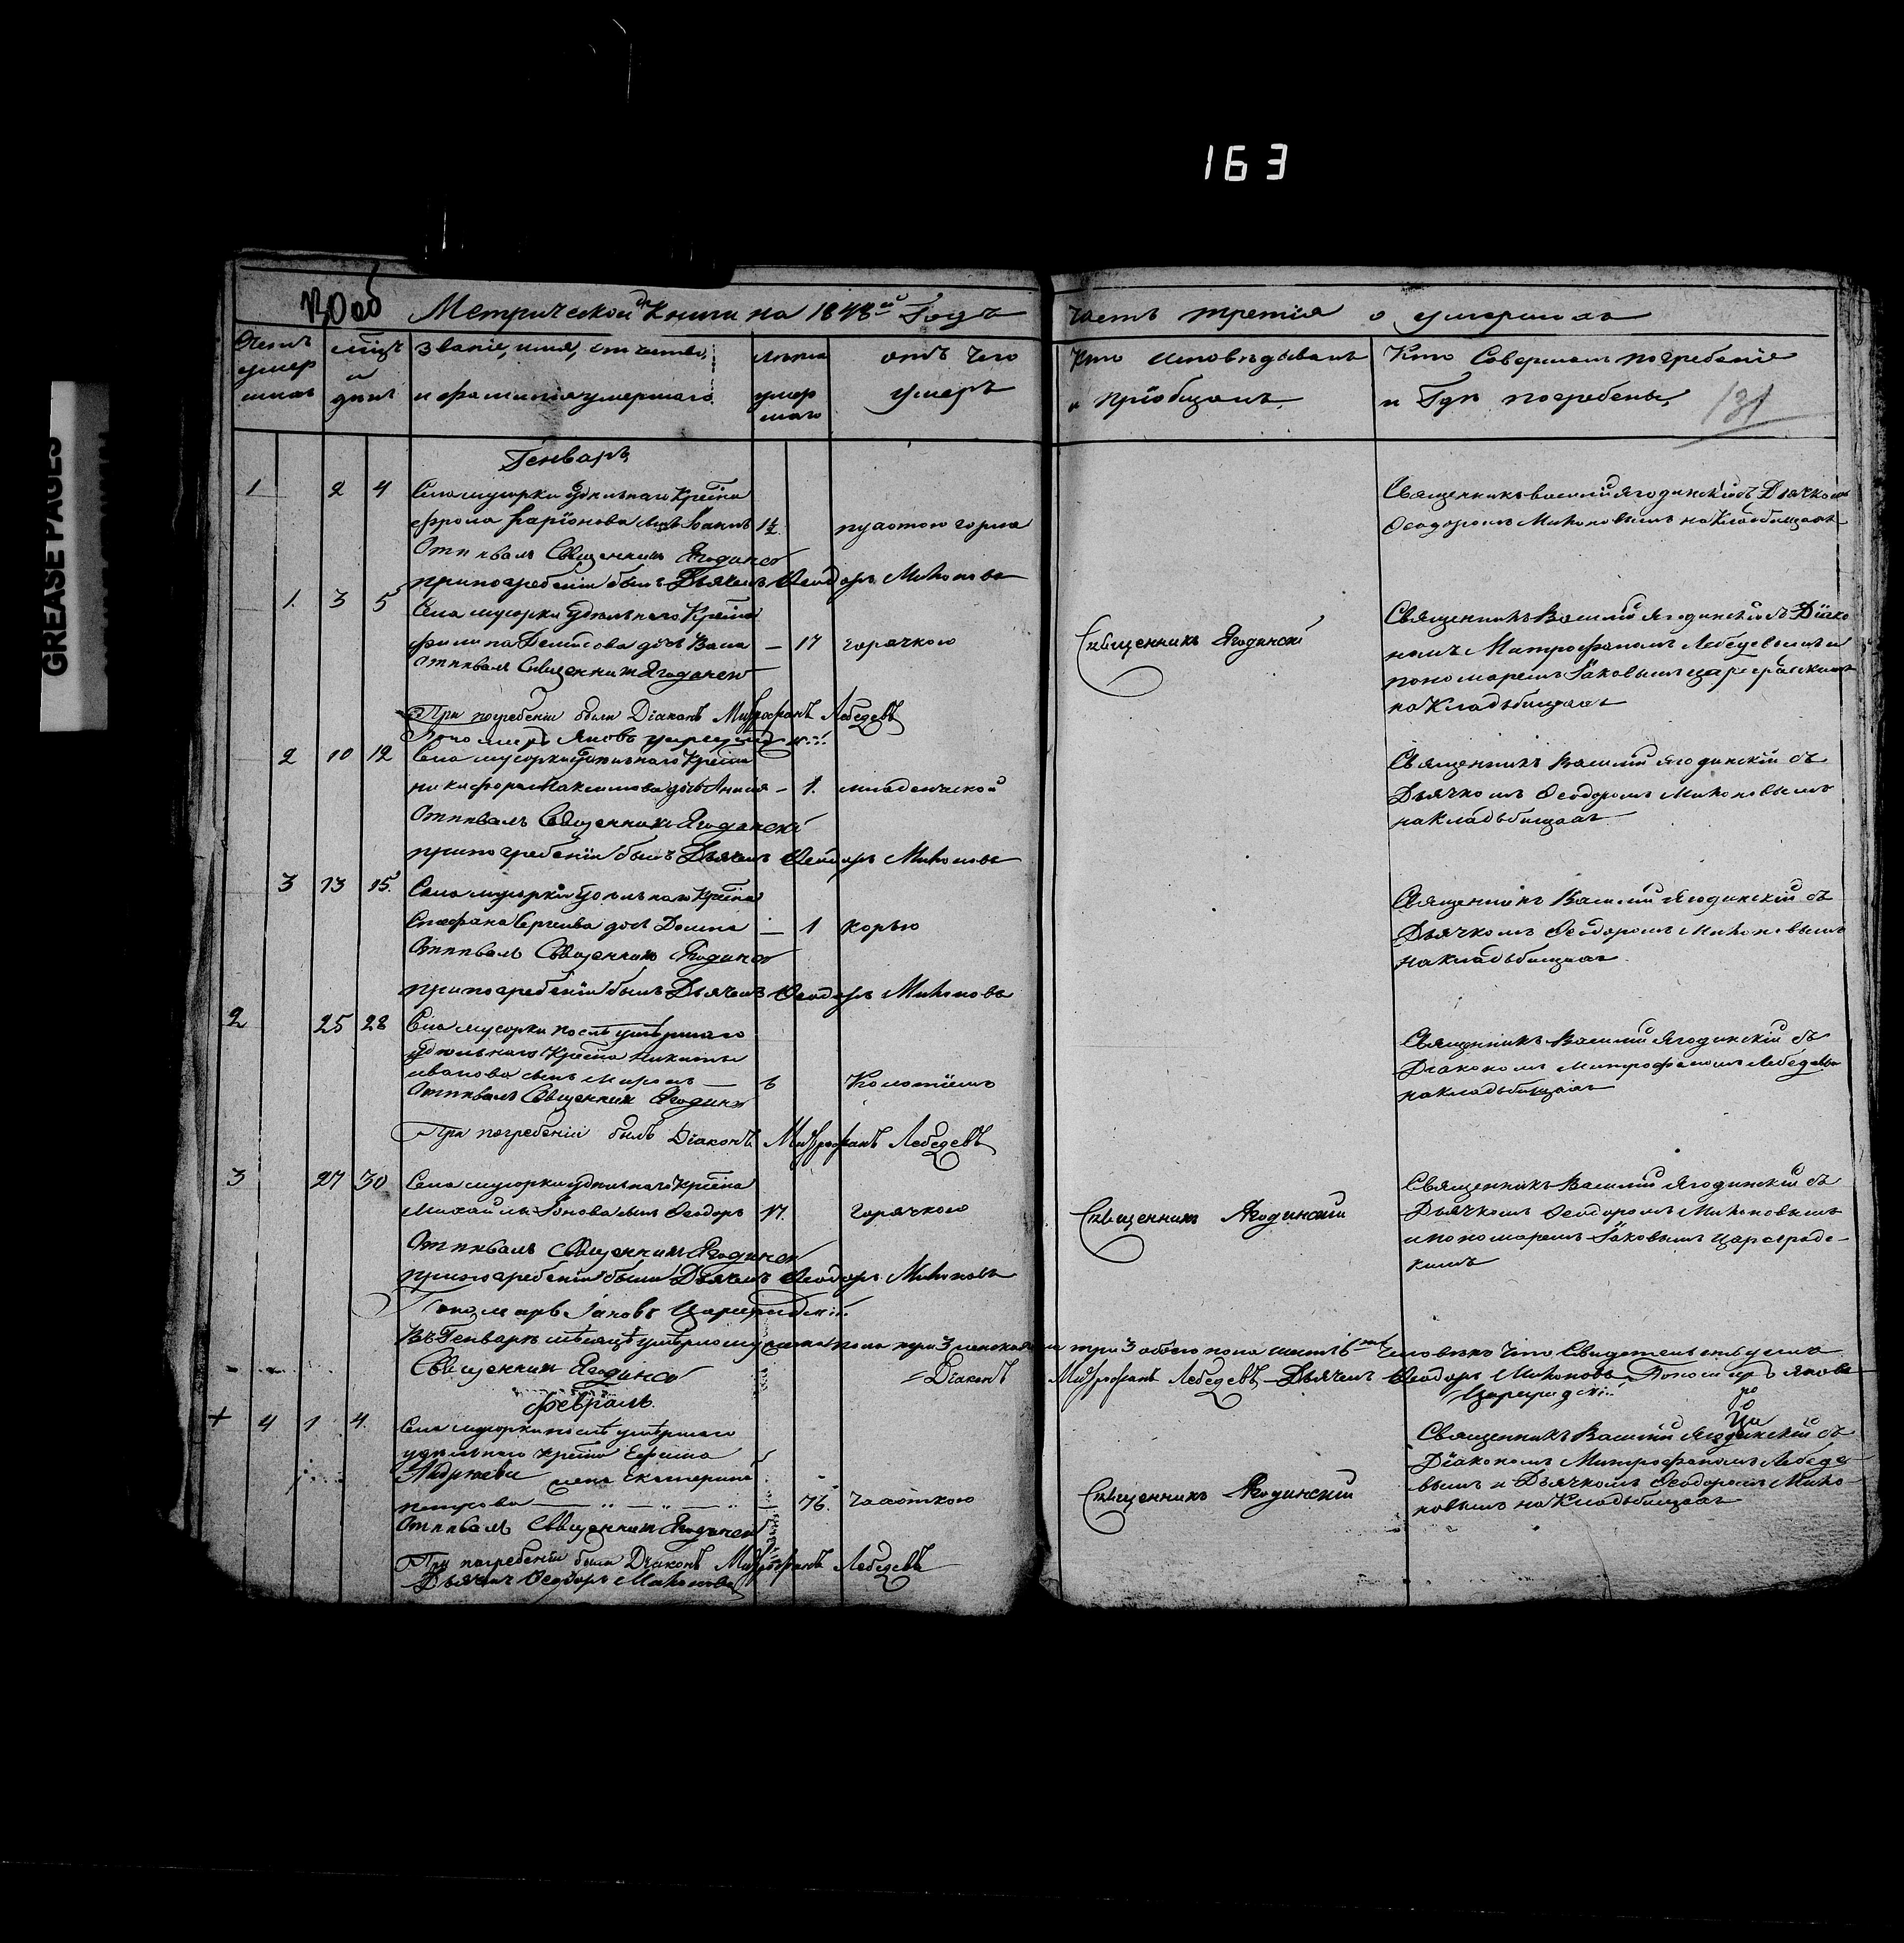 163
GREASE PAGES
130 об
Метрической Книги на 1848й Годъ
часть третія о умершихъ
131
Счетъ умершихъ
мѣсяцъ и дни
Званіе, имя, отчество, и фамилія умершаго
лѣта умершаго
отъ чего умеръ
Кто исповѣдывалъ и пріобщалъ
Кто Совершалъ погребеніе и Гдѣ погребены
Генварь
1 2 4 Села мусорки Удѣльнаго Крестна
фрола Ларіонова сынъ Іоаннъ 1½
Отпѣвалъ Священникъ Ягодинск
при погребеніи былъ Дьячекъ Ѳеодоръ Михоновъ
Священникъ Василій Ягодинскій съ Дьячкомъ
Ѳеодоромъ Михоновымъ на Кладбищахъ
1. 3 5 Села мусорки Удѣльнаго Крестна
филипа Денисова дочь Васа — 17 горячкою
Отпѣвалъ Священникъ Ягодинск
При погребеніи были Діаконъ Митрофанъ Лебедевъ
Пономарь Яковъ
Священникъ Ягодинскі
Священникъ Василій Ягодинскій съ Діако
номъ Митрофаномъ Лебедевымъ и
пономаремъ Іаковымъ Цареградскимъ
на Кладьбищахъ
2 10 12 Села мусорки Удѣльнаго Крестна
никифора Максимова дочь — 1. младенческой
Отпѣвалъ Священникъ Ягодинскі
при погребеніи былъ Дьячекъ Ѳеодоръ Михоновъ
Священникъ Василій Ягодинскій съ
Дьячкомъ Ѳеодоромъ Михоновымъ
на Кладьбищахъ
3 13 15. Села мусорки Удѣльнаго Крестна
Стефана Сергеива дочь Домна — 1 корью
Отпѣвалъ Священникъ Ягодинск
при погребеніи былъ Дьячекъ Ѳеодоръ Михоновъ
Священникъ Василій Ягодинскій съ
Дьячкомъ Ѳеодоромъ Михоновымъ
на Кладьбищахъ
2 25 28 Села мусорки послѣ умѣршаго
Удѣльнаго Крестна Никиты
иванова сынъ — 6 Колотіемъ
Отпѣвалъ Священникъ Ягодинс
При погребеніи былъ Діаконъ Митрофанъ Лебедевъ
Священникъ Василій Ягодинскій съ
Діакономъ Митрофаномъ Лебедевы
на кладьбищахъ
3 27 30 Села мусорки удѣльнаго крестна
Михаила сынъ Ѳеодоръ 17. Горячкою
Отпѣвалъ Священникъ Ягодинск
при погребеніи были Дьячекъ Ѳеодоръ Михоновъ
Пономарь Іаковъ Цареградскій
Священникъ Ягодинскій
Священникъ Василій Ягодинскій съ
Дьячкомъ Ѳеодоромъ Михоновымъ
и пономаремъ Іаковымъ Цареградс-
кимъ
Въ Генварѣ мѣсяцѣ умѣрло мужеска пола три 3 женскаго три 3 обоего пола шесть 6ть Человѣкъ Что Свидетельствуемъ
Священникъ Ягодинск
Діаконъ Митрофанъ Лебедевъ Дьячекъ Ѳеодоръ Михоновъ Пономарь Яковъ
Цареградскі
февраль
+ 4 1 4. Села мусорки послѣ умѣршаго
удѣльнаго крестна Ефима
Андреева жена Екатерина
петрова — 76. Чахоткою
Отпѣвалъ Священникъ Ягодинск
При погребеніи были Діаконъ Митрофанъ Лебедевъ
Дьячекъ Ѳеодоръ Михоновъ
Священникъ Ягодинскій
Священникъ Василій Ягодинскій съ
Діакономъ Митрофаномъ Лебеде-
вымъ и Дьячкомъ Ѳеодоромъ Михо-
новымъ на Кладьбищахъ